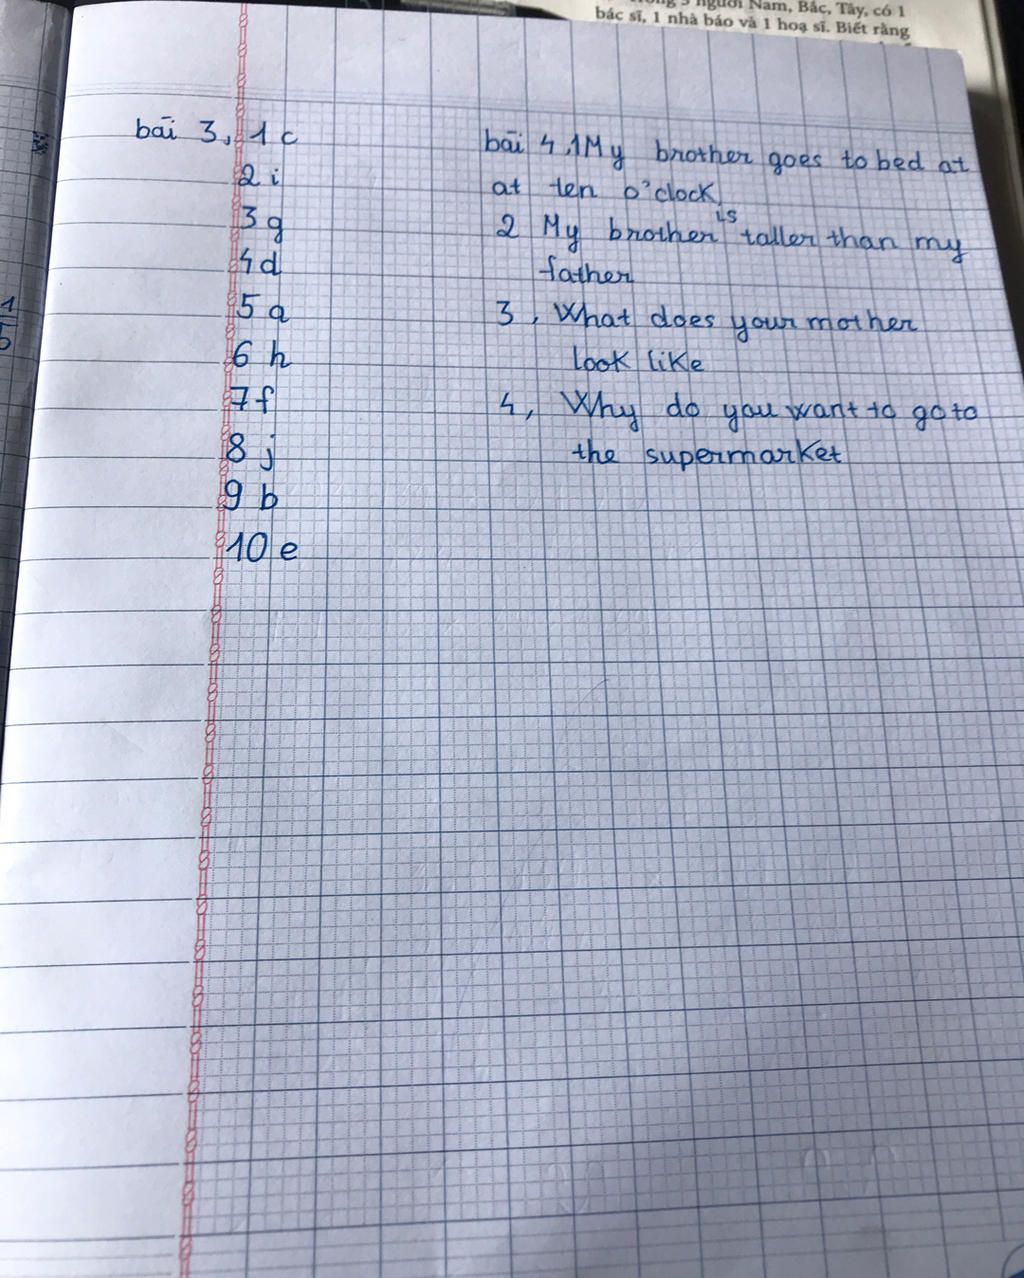 người Nam, Bắc, Tây, có 1
bác sĩ, 1 nhà báo và 1 hoạ sĩ. Biết rằng
bài 3, 1 c
2 i
3 g
4 d
5 a
6 h
7 f
8 j
9 b
10 e
bài 4, 1 My brother goes to bed at
at ten o'clock
2 My brother is taller than my
father
3, What does your mother
look like
4, Why do you want to go to
the supermarket
1
5